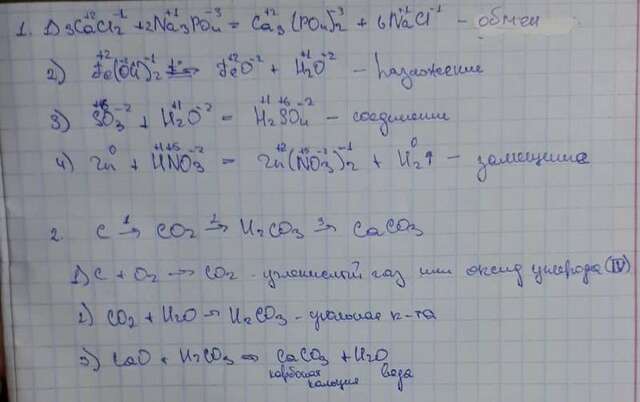 1. 1) 3CaCl₂ + 2Na₃PO₄ = Ca₃(PO₄)₂ + 6NaCl - обмен
2) Fe(OH)₂ = FeO + H₂O - разложение
3) SO₃ + H₂O = H₂SO₄ - соединение
4) Zn + HNO₃ = Zn(NO₃)₂ + H₂↑ - замещение
2. C →¹ CO₂ →² H₂CO₃ →³ CaCO₃
1) C + O₂ → CO₂ - углекислый газ или оксид углерода (IV)
2) CO₂ + H₂O → H₂CO₃ - угольная к-та
3) CaO + H₂CO₃ → CaCO₃ + H₂O
карбонат вода
кальция